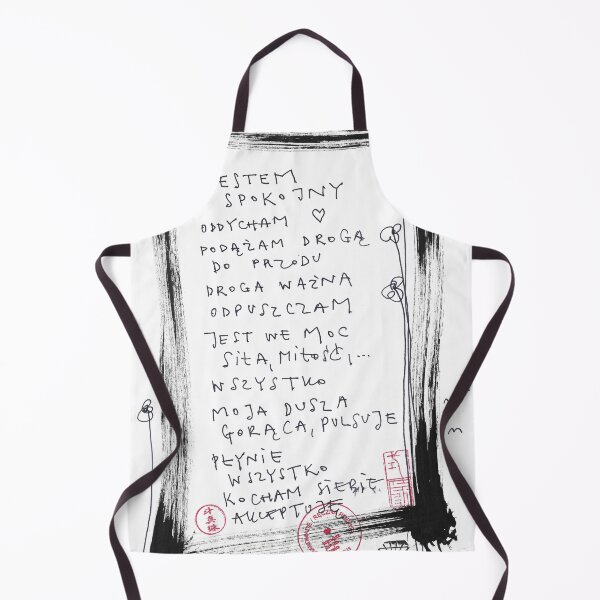 ESTEM
SPOKOJNY
ODDYCHAM ♡
PODĄŻAM DROGĄ
DO PRZODU
DROGA WAŻNA
ODPUSZCZAM
JEST WE MOC
SIŁA, MIŁOŚĆ,...
WSZYSTKO
MOJA DUSZA
GORĄCA, PULSUJE
PŁYNIE
WSZYSTKO
KOCHAM SIEBIE
AKCEPTUJĘ